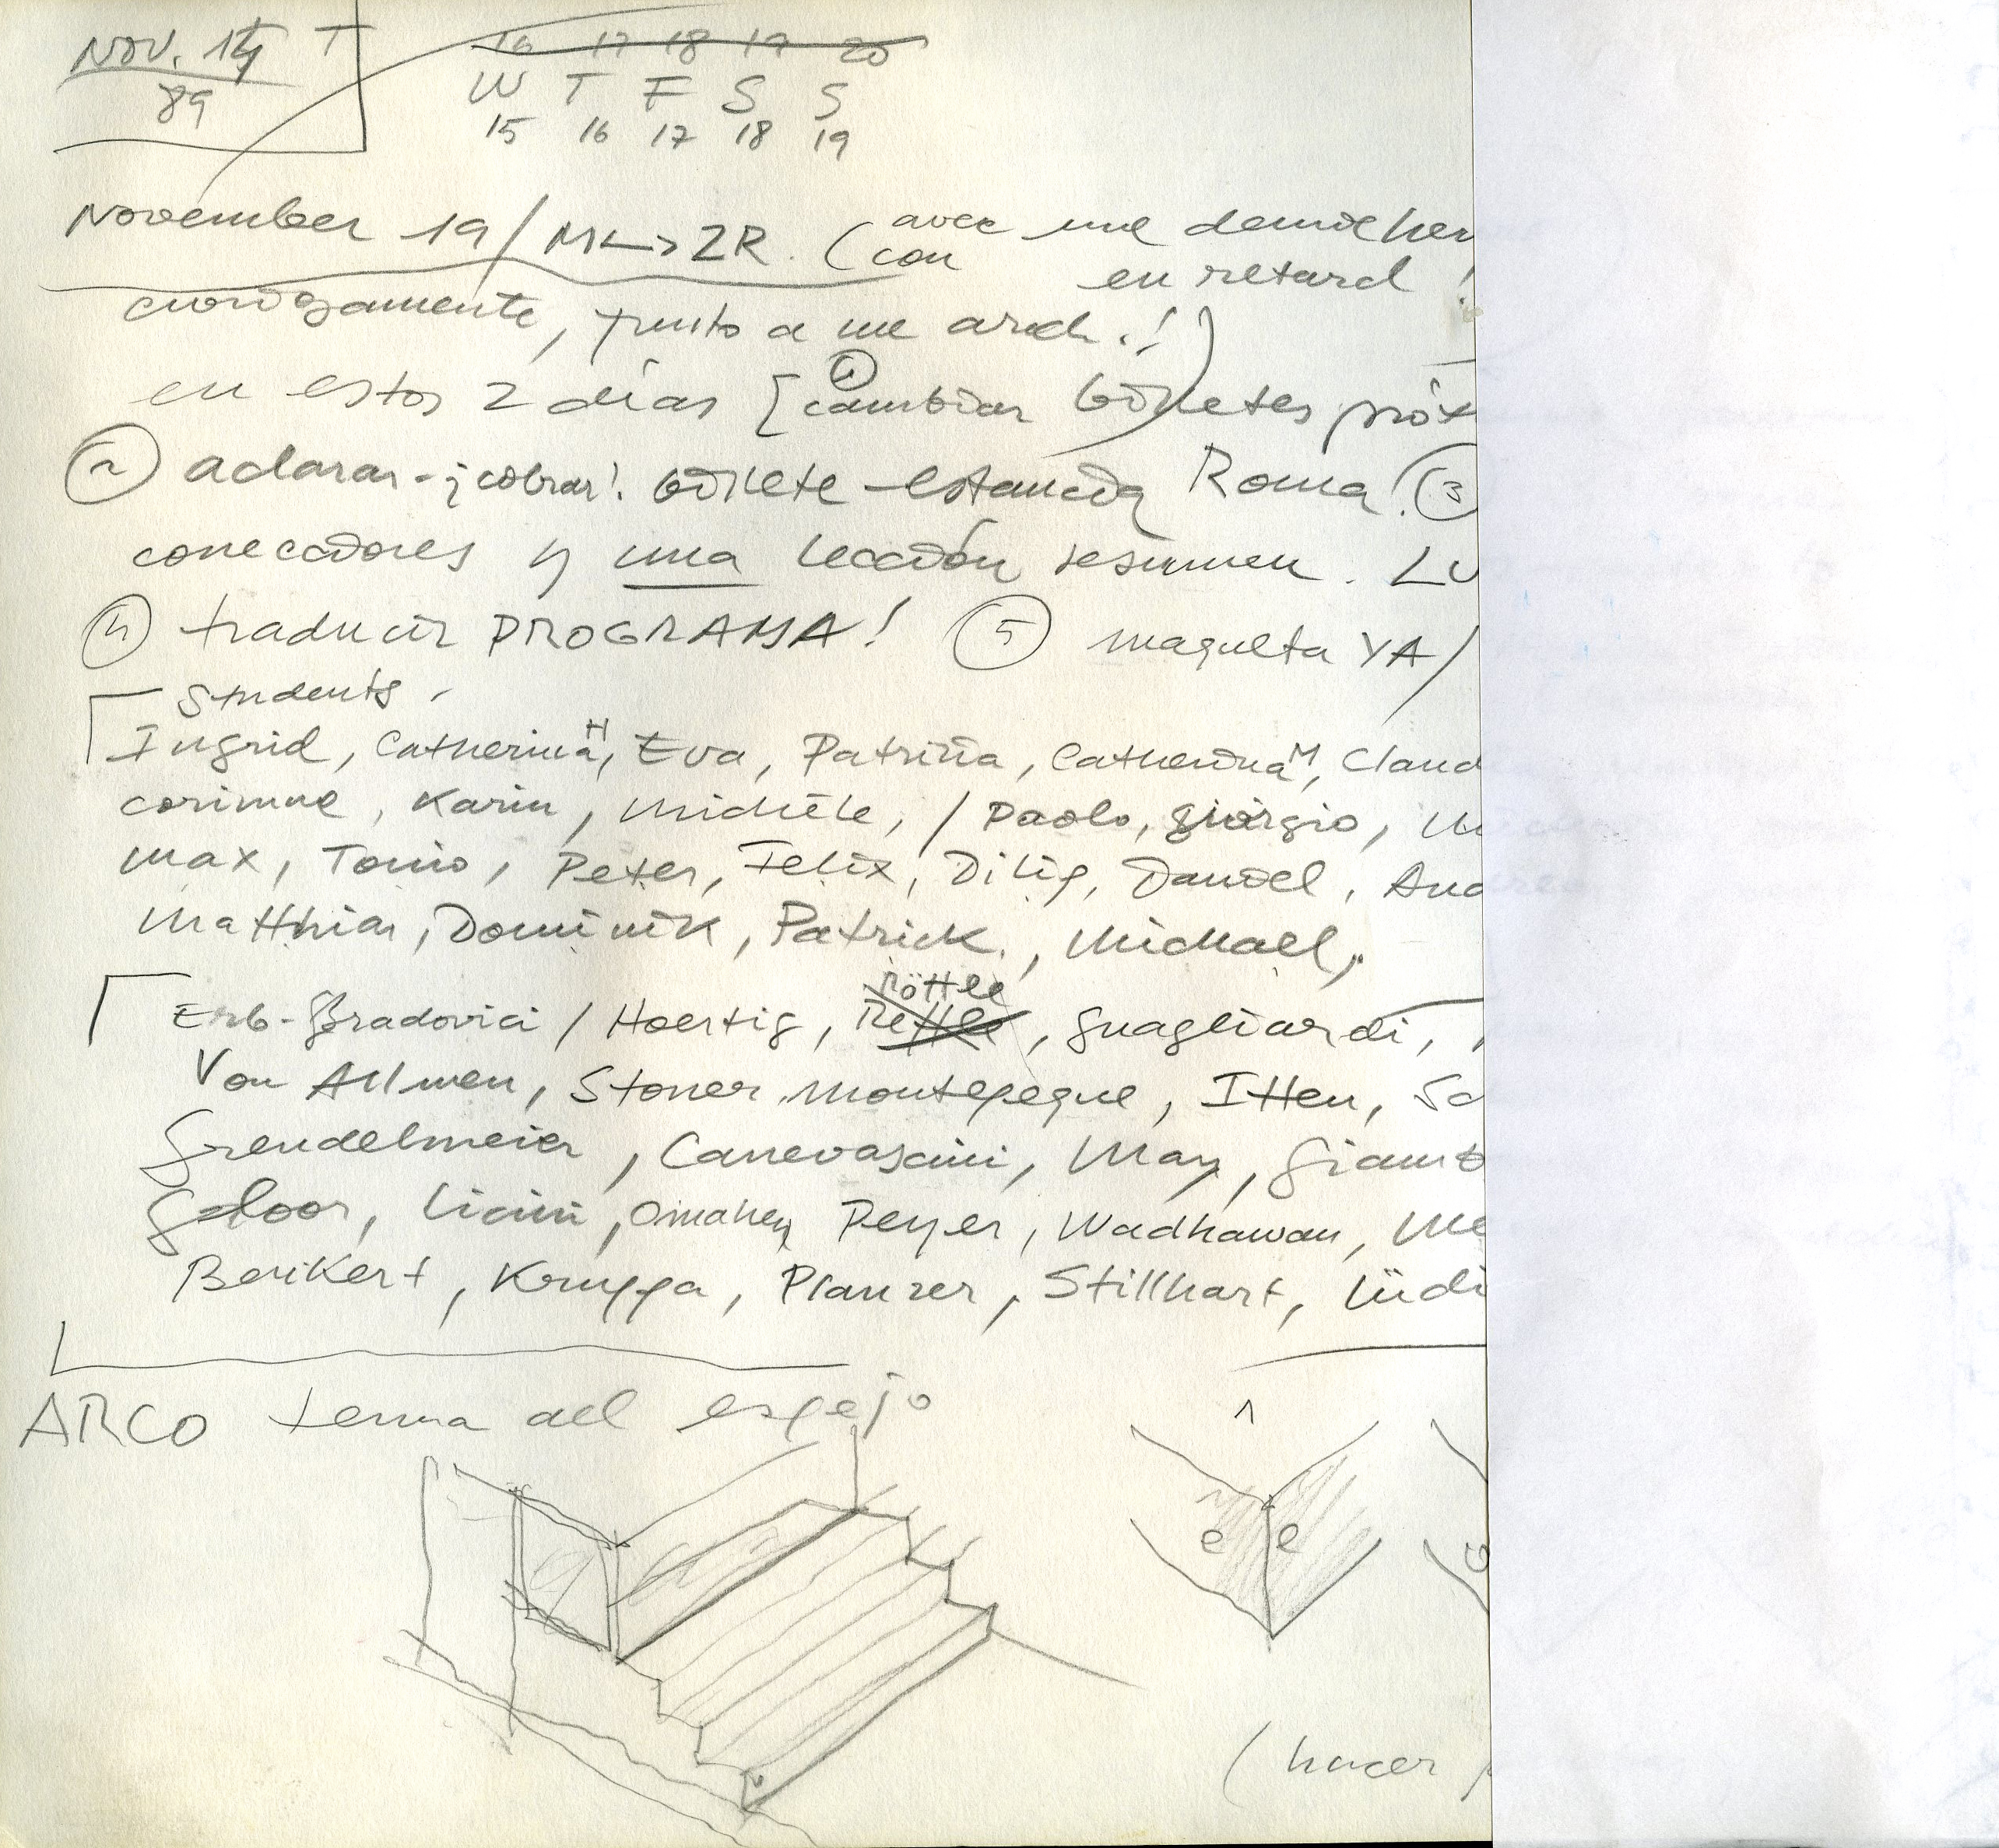 NOV. 14 T
89
16 17 18 19 20
W T F S S
15 16 17 18 19
November 19 / M<->ZR. (avec une demie heu
con en retard !
, junto a me arch.!)
en estos 2 días [ ① cambiar billetes próx
② aclarar - ¡cobrar! billete - estancia Roma! (3
correcciones y una lección resumen. LU
④ traducir PROGRAMA! ⑤ maqueta YA/
Students.
Ingrid, Catherina H, Eva, Patrizia, Catherina M, Claud
Corinne, Karin, Michèle, / Paolo, Giorgio, M
Max, Tomio, Peter, Felix, Dilip, Daniel, And
Matthias, Dominik, Patrick, Michael,
Röttle
Erb-Bradovici / Hoertig, Rettle, Guagliardi,
Von Allmen, Stoner, Montepeque, Itten, Sc
Grendelmeier, Canevascini, May, Giamb
Gloor, Licini, Omahen, Peyer, Wadhawan, Me
Berikert, Kruppa, Planzer, Stillhart, Lüdi
ARCO tema del espejo
1
e e
(hacer